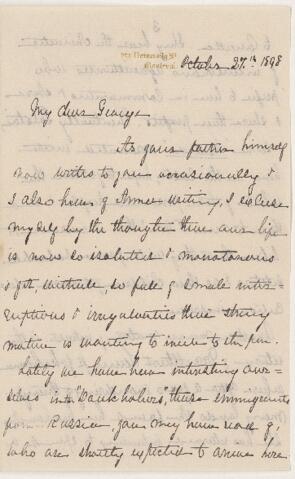 Montreal
October 27th 1898
My dear George
As your father himself
now writes to you occasionally &
I also hear of Anne writing, I excuse
myself by the thought that our life
is now so isolated & monotonous
& yet, withal, so full of small inter=
ruptions & irregularities that strong
motive is wanting to incite to the pen.
Lately we have been interesting our=
selves in the "Doukhobors", those immigrants
from Russia, you may have read of,
who are shortly expected to arrive here